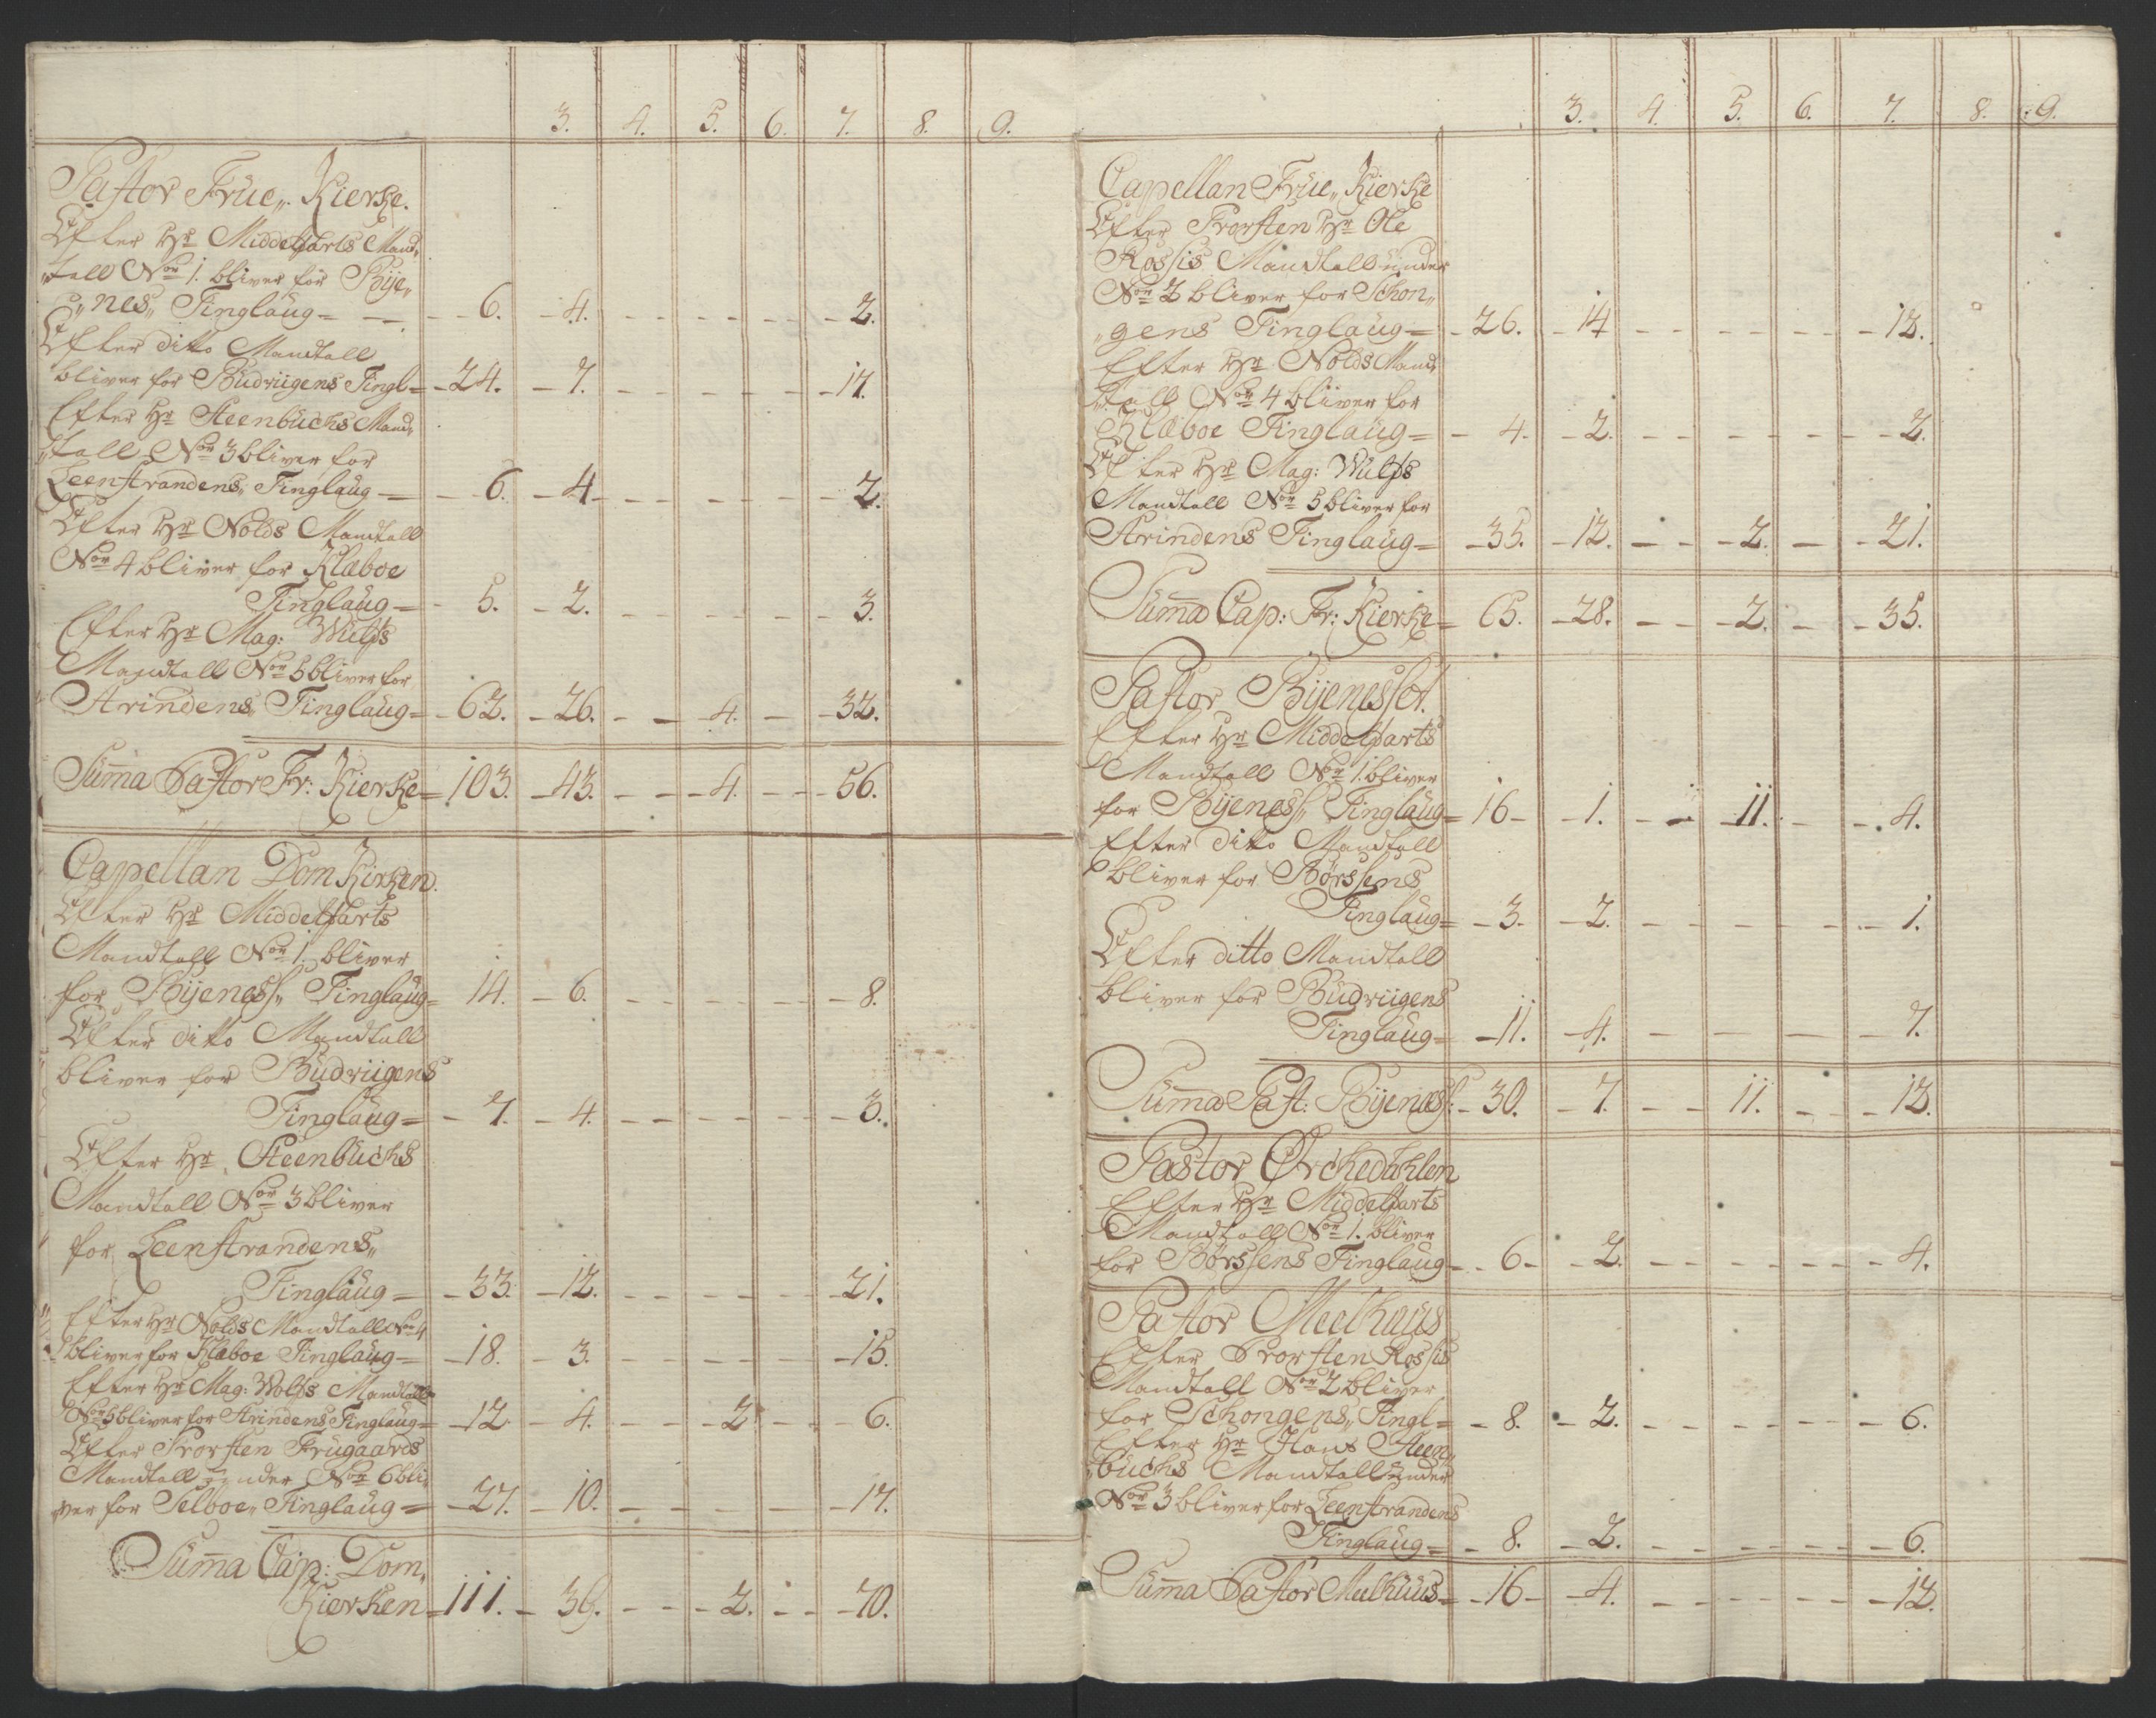 3. 4. 5. 6. 7. 8. 9.
Pastor Frue„ Kierke.
Efter Hr Middelfarts Mand„
„tall Nor 1. bliver for Bije„
„nes„ Tinglaug= — - 6. - 4. - - - - - - 2.
Efter ditto Mandtall
bliver for Budviigens Tingl= - 24. - 7. - - - - - 17.
Efter Hr Steenbuchs Mand„
„tall Nor 3 bliver for
Leenstrandens„ Tinglaug — - 6. - 4 - - - - - - 2.
Efter Hr Nolds Mandtall
Nor 4 bliver for Klæboe
Tinglaug = - 5. - 2. - - - - - - 3.
Efter Hr Mag: Wulfs
Mandtall Nor 5 bliver for
Strindens„ Tinglaug= - 62. - 26. - - 4. - - 32.
Summa Pastor Fr: Kierke= 103. - 43. - - 4. - - 56.
Capellan Dom Kirken.
Efter Hr Middelfarts
Mandtall Nor 1. bliver
for Bijeness„ Tinglaug= 14. - 6. - - - - - - 8.
Efter ditto Mandtall
bliver for Budviigens
Tinglaug= - 7. - 4. - - - - - - 3.
Efter Hr Steenbuchs
Mandtall Nor 3 bliver
for Leenstrandens„
Tinglaug = - 33. - 12. - - - - - - 21.
Efter Hr Nolds Mandtall Nor 4
bliver for Klæboe Tinglaug= - 18. - 3. - - - - - - 15.
Efter Hr Mag: Wolfs Mandtall
Nor 5 bliver for Strindens Tinglaug= - 12. - 4. - - 2 - - 6.
Efter Prorsten Frugaards
Mandtall under Nor 6 bli„
ver for Selboe„ Tinglaug = - 27. - 10. - - - - - 17.
Summa Cap: Dom„
Kierken = 111. - 39. - - 2. - - 70.
3. 4. 5. 6. 7. 8. 9.
Capellan Frue„ Kierke
Efter Prorsten Hr Ole
Rossis Mandtall under
Nor 2 bliver for Schon„
„gens Tinglaug= - 26. - 14 - - - - - 12.
Efter Hr Nolds Mand„
„tall Nor 4 bliver for
Klæboe Tinglaug= - 4. - 2. - - - - - - 2.
Efter Hr Mag: Wulfs
Mandtall Nor 5 bliver for
Strindens Tinglaug= - 35. - 12. - - 2. - - 21.
Summa Cap: Fr: Kierke= 65. - 28. - - 2. - - 35.
Pastor Bijenesset.
Efter Hr Middelfarts
Mandtall Nor 1. bliver
for Bijeness„ Tinglaug= 16 - - 1. - - 11. - - 4.
Efter Ditto Mandtall
bliver for Børssens
Tinglaug= - 3. - 2. - - - - - - 1.
Efter ditto Mandtall
bliver for Budviigens
Tinglaug= - 11. - 4. - - - - 7.
Summa Past: Bijeness: - 30. - 7. - - 11. - - 12.
Pastor Ørchedahlen
Efter Hr Middelfarts
Mandtall Nor 1. bliver
for Børssens Tinglaug - - 6 - - 2. - - - - - - 4.
Pastor Meelhuus
Efter Prorsten Rossis
Mandtall Nor 2 bliver
for Schongens„ Tingl= - 8. - 2. - - - - - - 6.
Efter Hr Hans Steen„
„buchs Mandtall under
Nor 3 bliver for Leenstrandens
Tinglaug= - 8. - 2. - - - - - - 6.
Summa Pastor Meelhuus= - 16 - - 4. - - - - - 12.